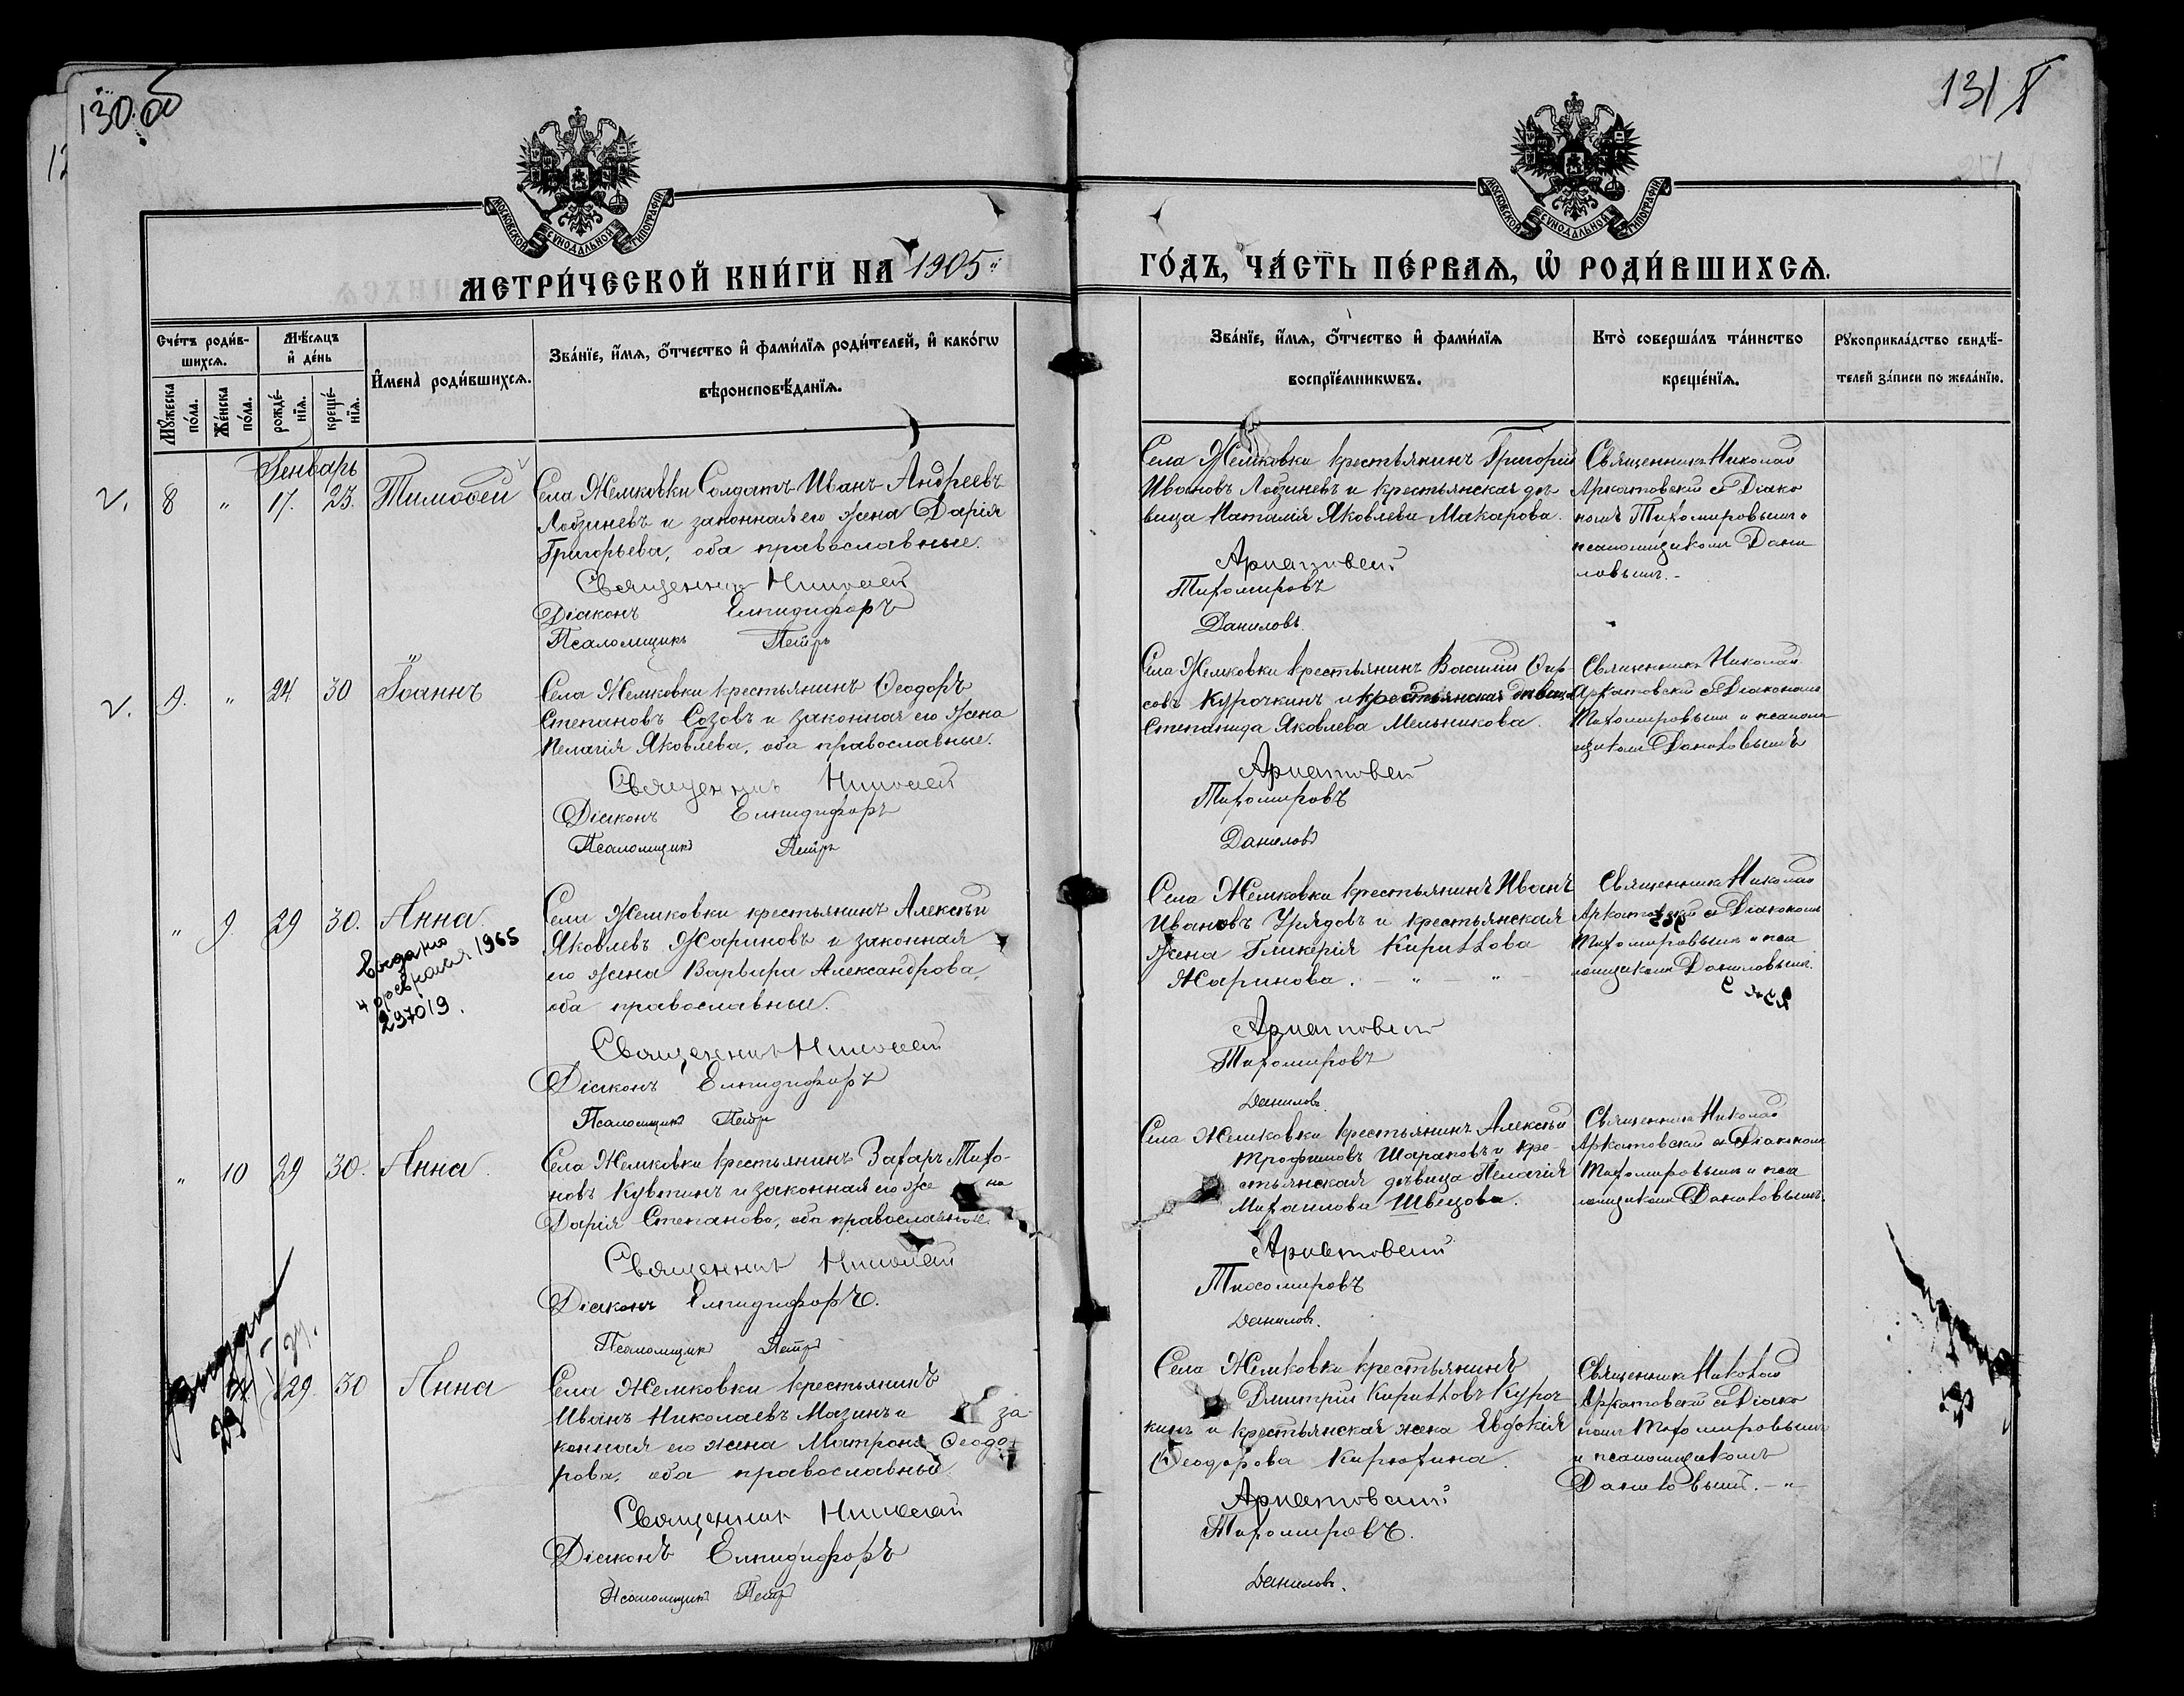 130 об
131
МОСКОВСКОЙ СѴНОДАЛЬНОЙ ТИПОГРАФІИ
МОСКОВСКОЙ СѴНОДАЛЬНОЙ ТИПОГРАФІИ
МЕТРИ́ЧЕСКОЙ КНИ́ГИ НА 1905й
ГО́ДЪ, ЧА́СТЬ ПЕ́РВАѦ, Ѡ҆ РОДИ́ВШИХСѦ.
Сче́тъ роди́в-
шихсѧ.
Мꙋ́жеска по́ла.
Же́нска по́ла.
Мѣ́сѧцъ
и҆ де́нь
рожде́-
нїѧ.
креще́-
нїѧ.
И҆мена̀ роди́вшихсѧ.
Зва́нїе, и҆́мѧ, ѻ҆́тчество и҆ фами́лїѧ роди́телей, и҆ како́гѡ
вѣроисповѣ́данїѧ.
Зва́нїе, и҆́мѧ, ѻ҆́тчество и҆ фами́лїѧ
воспрїе́мникѡвъ.
Кто̀ соверша́лъ та́инство
креще́нїѧ.
Рꙋкоприкла́дство свидѣ́-
телей за́писи по жела́нїю.
Генварь
8 " 17. 23. Тимоѳей
Села Жемковки Солдатъ Иванъ Андреевъ
Лобзиневъ и законная его жена Дарія
Григорьева, оба православные.
Священникъ Николай
Діаконъ Елпидифоръ
Псаломщикъ Петръ
Села Жемковки крестьянинъ Григорій
Ивановъ Лобзиневъ и крестьянская дѣ-
вица Наталія Яковлева Макарова.
Аркатовскій
Тихомировъ
Даниловъ.
Священникъ Николай
Аркатовскій съ Діако
номъ Тихомировымъ и
псаломщикомъ Дани
ловымъ.-
9. " 24 30 Іоаннъ
Села Жемковки крестьянинъ Ѳеодоръ
Степановъ Созовъ и законная его жена
Пелагія Яковлева, оба православные.
Священникъ Николай
Діаконъ Елпидифоръ
Псаломщикъ Петръ
Села Жемковки крестьянинъ Василій Фир-
совъ Курочкинъ и крестьянская дѣвица
Степанида Яковлева Мельникова.
Аркатовскій
Тихомировъ
Даниловъ
Священникъ Николай
Аркатовскій съ Діакономъ
Тихомировымъ и псалом
щикомъ Даниловымъ
" 9 29 30. Анна
Выдано
4 февраля 1965
297019.
Села Жемковки крестьянинъ Алексѣй
Яковлевъ Жариновъ и законная
его жена Варвара Александрова,
оба православные.
Священникъ Николай
Діаконъ Елпидифоръ
Псаломщикъ Петръ
Села Жемковки крестьянинъ Иванъ
Ивановъ Урядовъ и крестьянская
жена Гликерія Кириллова
Жаринова. - " - " -
Аркатовскій
Тихомировъ
Даниловъ.
Священникъ Николай
Аркатовскій съ Діакономъ
Тихомировымъ и пса
ломщикомъ Даниловымъ.
" 10 29 30. Анна.
Села Жемковки крестьянинъ Захаръ Тихо-
новъ Кувтинъ и законная его же на
Дарія Степанова, оба православные.
Священникъ Николай
Діаконъ Елпидифоръ.
Псаломщикъ Петръ
Села Жемковки крестьянинъ Алексѣй
Трофимовъ Шараповъ и кре-
стьянская дѣвица Пелагія
Михаилова Швецова.
Аркатовскій
Тихомировъ
Даниловъ.
Священникъ Николай
Аркатовскій съ Діакономъ
Тихомировымъ и пса
ломщикомъ Даниловымъ.
29. 30 Анна
Села Жемковки крестьянинъ
Иванъ Николаевъ Мазинъ и за-
конная его жена Матрона Ѳеодо-
рова, оба православные.
Священникъ Николай
Діаконъ Елпидифоръ
Псаломщикъ Петръ
Села Жемковки крестьянинъ
Дмитрій Кирилловъ Куроч-
кинъ и крестьянская жена Евдокія
Ѳеодорова Кирюхина.
Аркатовскій
Тихомировъ.
Даниловъ.
Священникъ Николай
Аркатовскій съ Діако
номъ Тихомировымъ
и псаломщикомъ
Даниловымъ. - " -